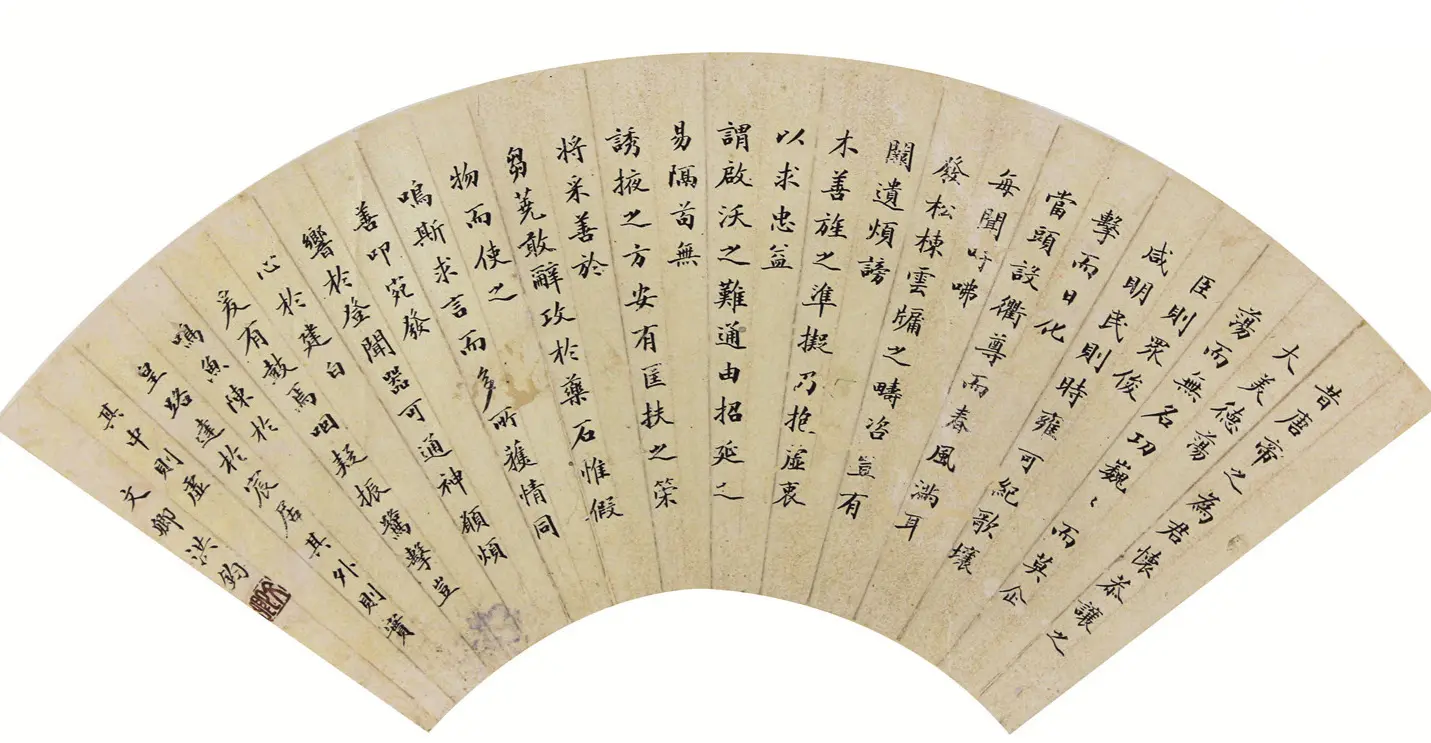 昔唐帝之為君懷恭讓之
大美德蕩
蕩而無名功巍〻而莫企
臣則眾俊
咸明民則時雍可紀歌壤
擊而日化
當頭設衢尊而春風滿耳
每聞吁咈
發松棟雲牖之疇咨豈有
關遺煩謗
木善旌之準擬乃抱虛衷
以求忠益
謂啟沃之難通由招延之
易隔苟無
誘掖之方安有匡扶之策
將采善於
芻蕘敢辭攻於藥石惟假
物而使之
鳴斯求言而多所獲情同
善叩宛發
響於登聞器可通神願煩
心於建白
爰有鼓焉咽鼓振鷺擊豈
鳴魚陳於
皇路達於宸居其外則實
其中則虛
文卿洪鈞